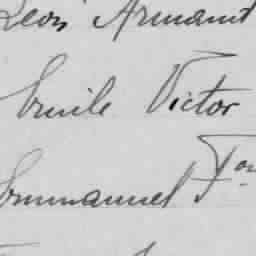 Léon Armand
Emile Victor
Emmanuel Fois